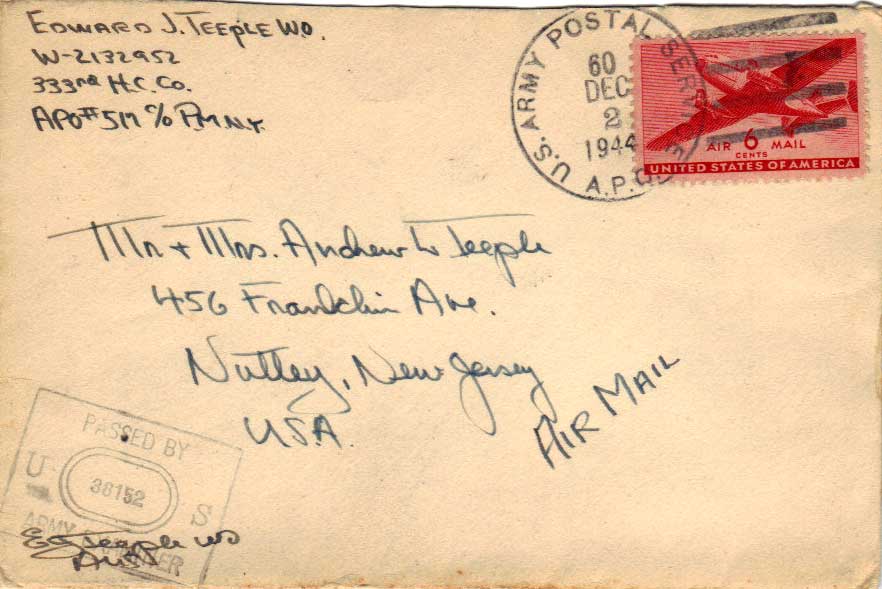 EDWARD J. TEEPLE W.O.
W-2132952
333rd H.C. Co.
APO# 517 c/o P.M. N.Y.
U.S. ARMY POSTAL SERVICE
60
DEC
2
1944
A.P.O.
AIR 6 MAIL
CENTS
UNITED STATES OF AMERICA
Mr. + Mrs. Andrew W Teeple
456 Franklin Ave.
Nutley, New Jersey
U.S.A.
AIR MAIL
PASSED BY
U 38152 S
ARMY EXAMINER
E J Teeple WO
AUS